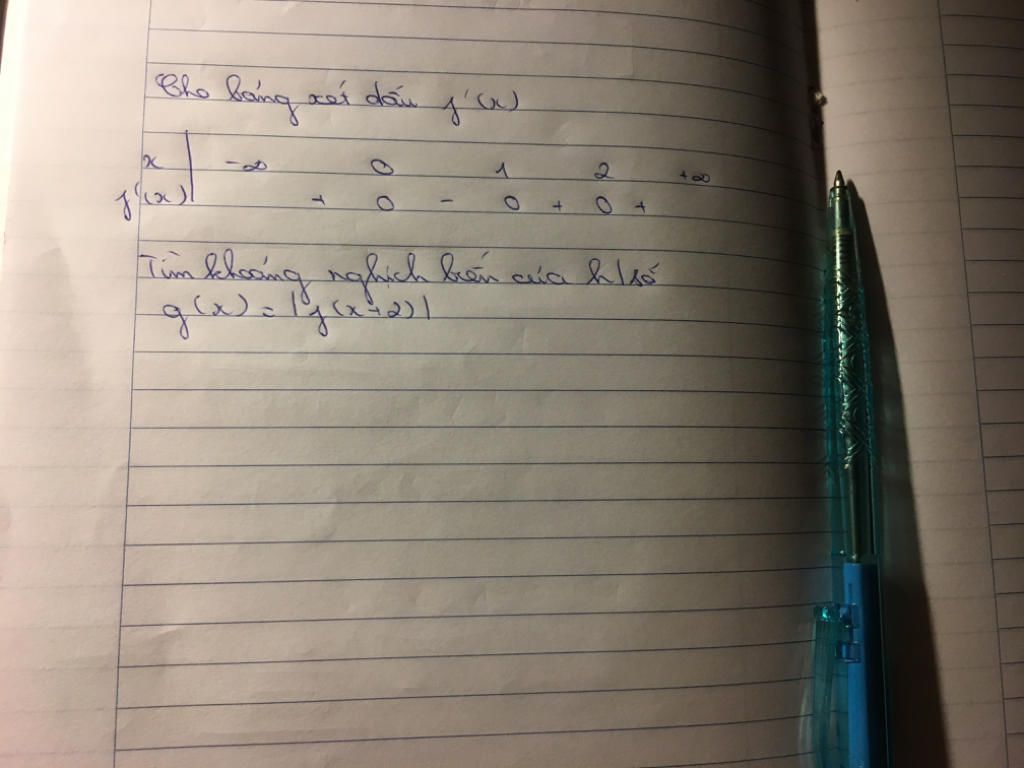 Cho bảng xét dấu f'(x)
x | -∞ 0 1 2 +∞
f'(x) | + 0 - 0 + 0 +
Tìm khoảng nghịch biến của h/số
g(x) = |f(x+2)|